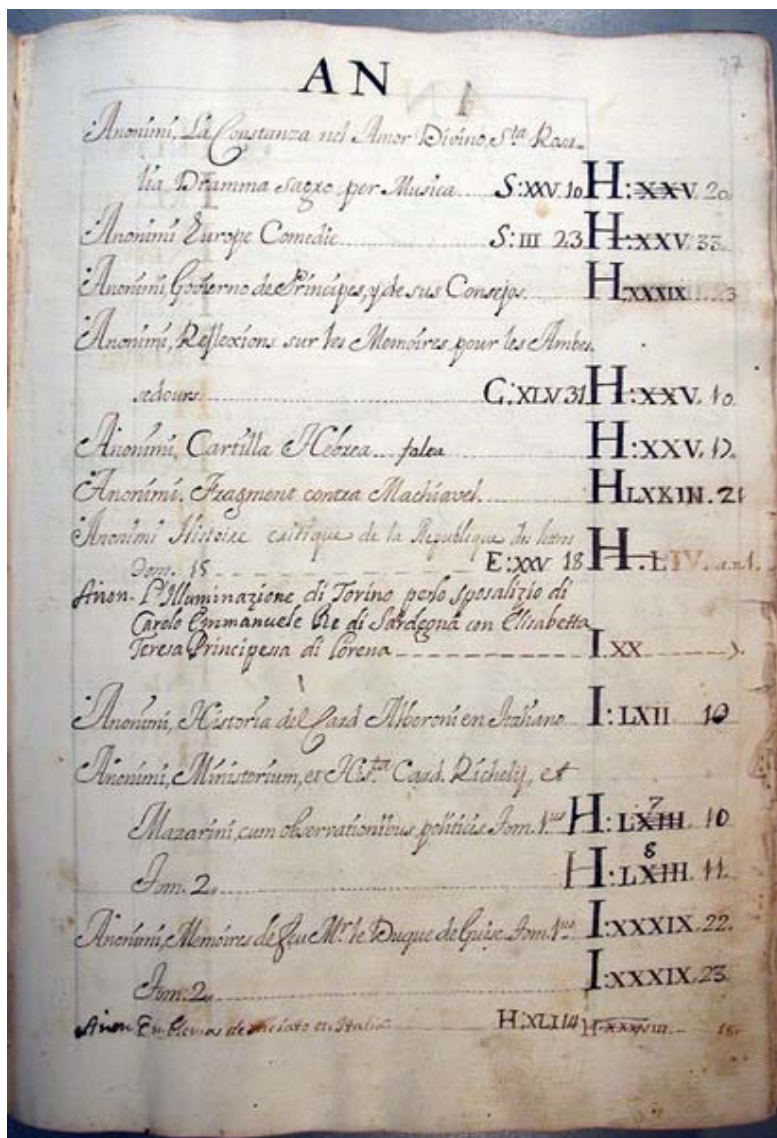 37
AN
Anonimi. La Constanza nel Amor Divino, S.ta Rosa-
lia, Dramma sagro per Musica S: XXV. 10 H: XXV. 20
Anonimi Europe Comedie S: III 23 H: XXV. 33.
Anonimi, Govierno de Principes, y de sus Consejos. H XXXIX 23
Anonimi, Reflexions sur les Memoires pour les Ambas
sadours. C: XLV 31 H: XXV. 10
Anonimi, Cartilla Hebrea falta H: XXV. 12.
Anonimi. Fragment contra Machiavel. H LXXIII. 21
Anonimi Histoire critique de la Republique des lettres
Tom. 15 E: XXV 18 H. LIV.
Anon. L'Illuminazione di Torino perlo sposalizio di
Carolo Emmanuele Re di Sardegna con Elisabetta
Teresa Principessa di Lorena I. XX
Anonimi, Historia del Card Alberoni en Italiano I: LXII 10
Anonimi, Ministerium, et His.ta Card. Richelij, et
Mazarini, cum observationibus politicis Tom. 1.us H: LXIII 7 10
Tom. 2. H: LXIII 8 11.
Anonimi, Memoires de feu Mr. le Duque de Guise Tom. 1.us I: XXXIX. 22.
Tom. 2. I: XXXIX. 23.
Anon. Emblemas de en Italia H: XLI 14